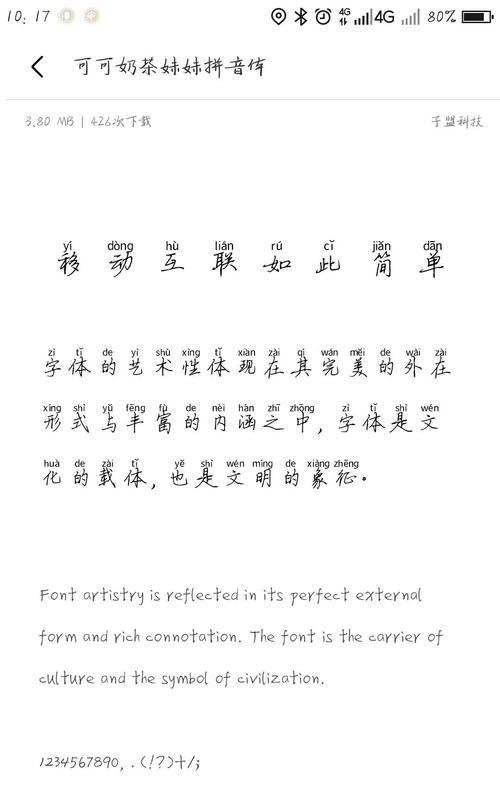 10:17 4G 4G 80%
可可奶茶妹妹拼音体
3.80 MB | 426次下载 子盟科技
yí dòng hù lián rú cǐ jiǎn dān
移动互联如此简单
zì tǐ de yì shù xìng tǐ xiàn zài qí wán měi de wài zài
字体的艺术性体现在其完美的外在
xíng shì yǔ fēng fù de nèi hán zhī zhōng zì tǐ shì wén
形式与丰富的内涵之中，字体是文
huà de zài tǐ yě shì wén míng de xiàng zhēng
化的载体，也是文明的象征。
Font artistry is reflected in its perfect external
form and rich connotation. The font is the carrier of
culture and the symbol of civilization.
1234567890,.(!?)+/;